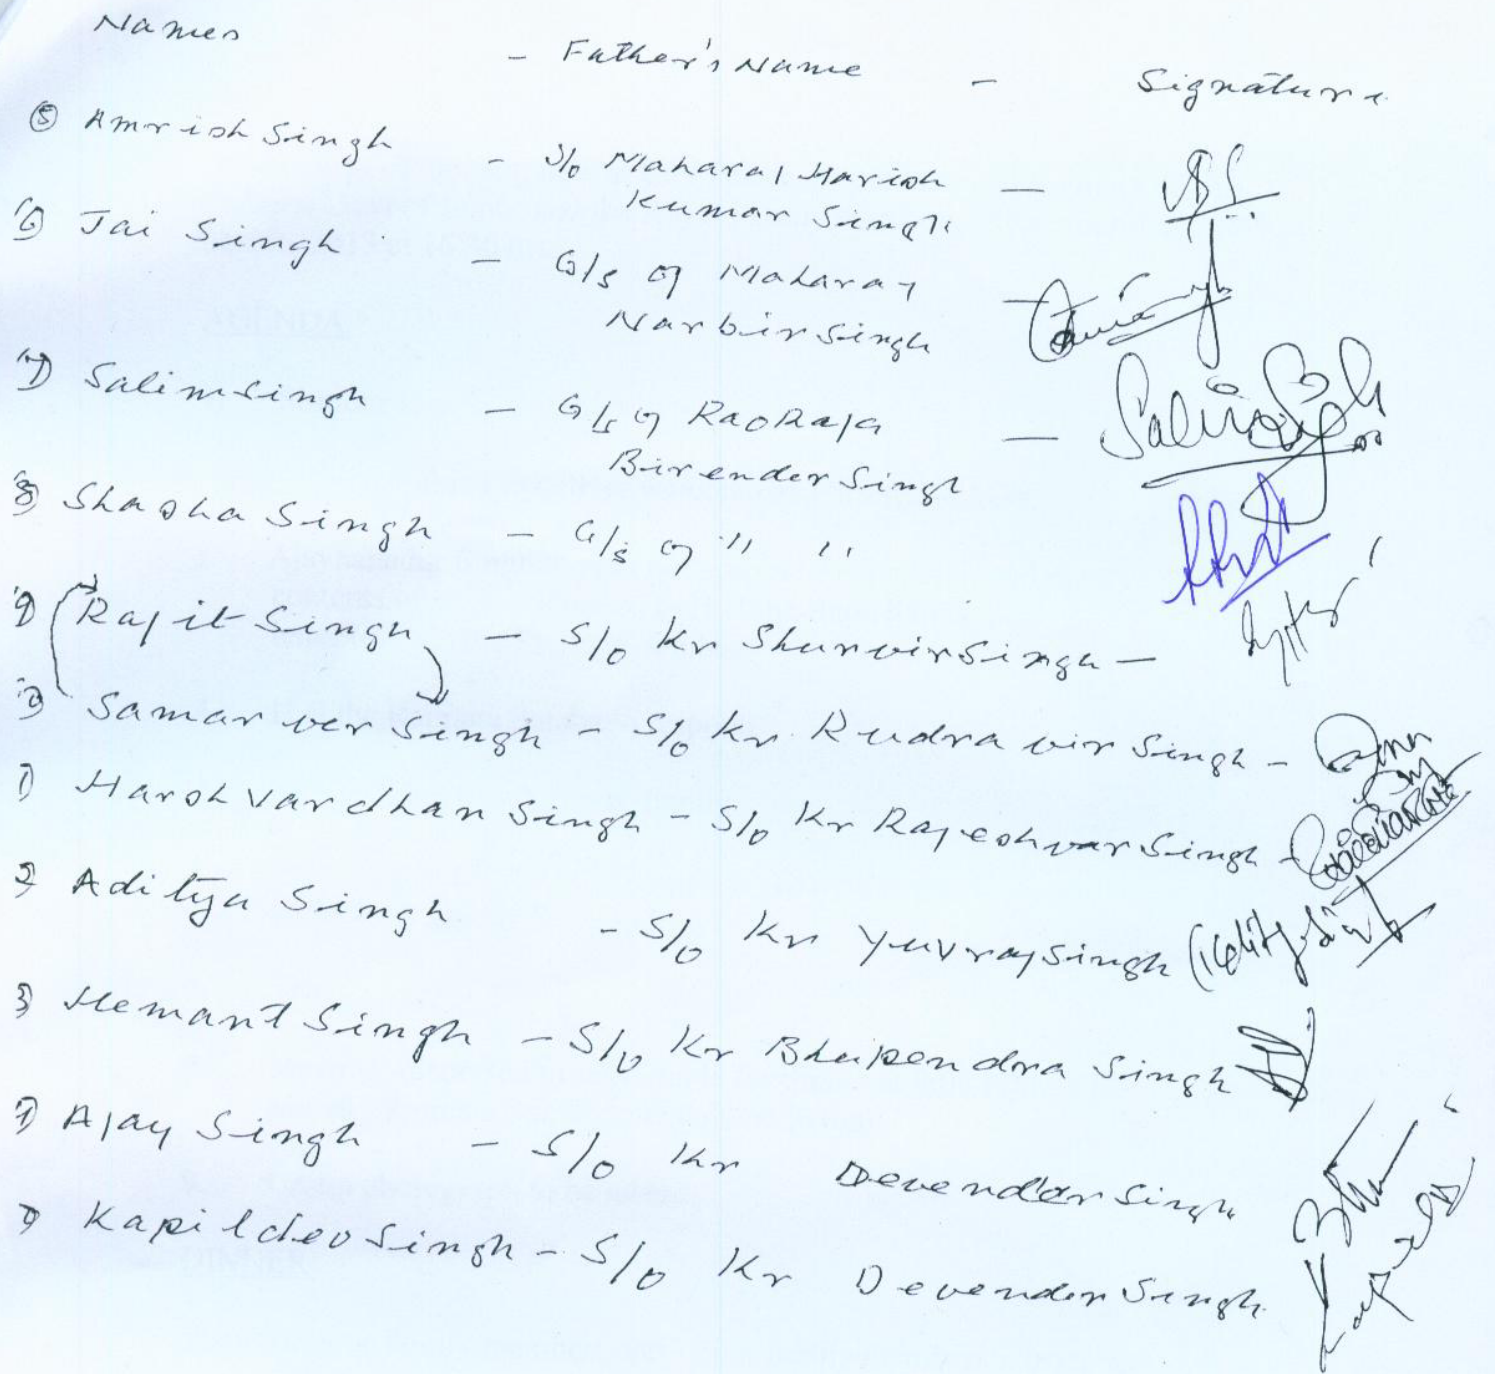 Names - Father's Name - Signature
⑤ Amrish Singh - S/o Maharaj Harish
Kumar Singh
⑥ Jai Singh - G/s of Maharaj
Narbir Singh
7) Salim Singh - G/s of Rao Raja
Birender Singh
8) Shasha Singh - G/s of " "
9) Rajit Singh - S/o Kr Shumvir Singh -
Samar ver Singh - S/o Kr. Rudra vir Singh -
1) Harsh Vardhan Singh - S/o Kr Rajeshvar Singh -
2) Aditya Singh - S/o Kr Yuvraj Singh
3) Hemant Singh - S/o Kr Bhupendra Singh
Ajay Singh - S/o Kr Devender Singh
Kapildev Singh - S/o Kr Devender Singh